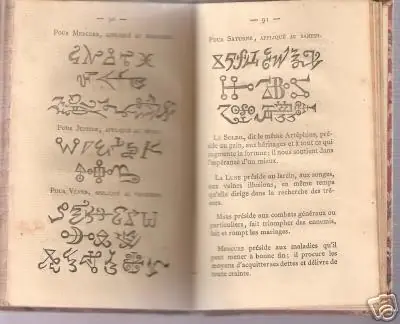 — 90 —
POUR MERCURE, APPLIQUÉ AU
POUR JUPITER, APPLIQUÉ AU
POUR VÉNUS, APPLIQUÉ AU
— 91 —
POUR SATURNE, APPLIQUÉ AU SAMEDI.
LE SOLEIL, dit le même Artéphius, pré-
side au gain, aux héritages et à tout ce qui
augmente la fortune; il nous soutient dans
l'espérance d'un mieux.
LA LUNE préside au jardin, aux songes,
aux vaines illusions, en même temps
qu'elle dirige dans la recherche des tré-
sors.
MARS préside aux combats généraux ou
particuliers, fait triompher des ennemis,
lait et rompt les mariages.
MERCURE préside aux maladies qu'il
peut mener à bonne fin; il procure les
moyens d'acquitter ses dettes et délivre de
toute crainte.